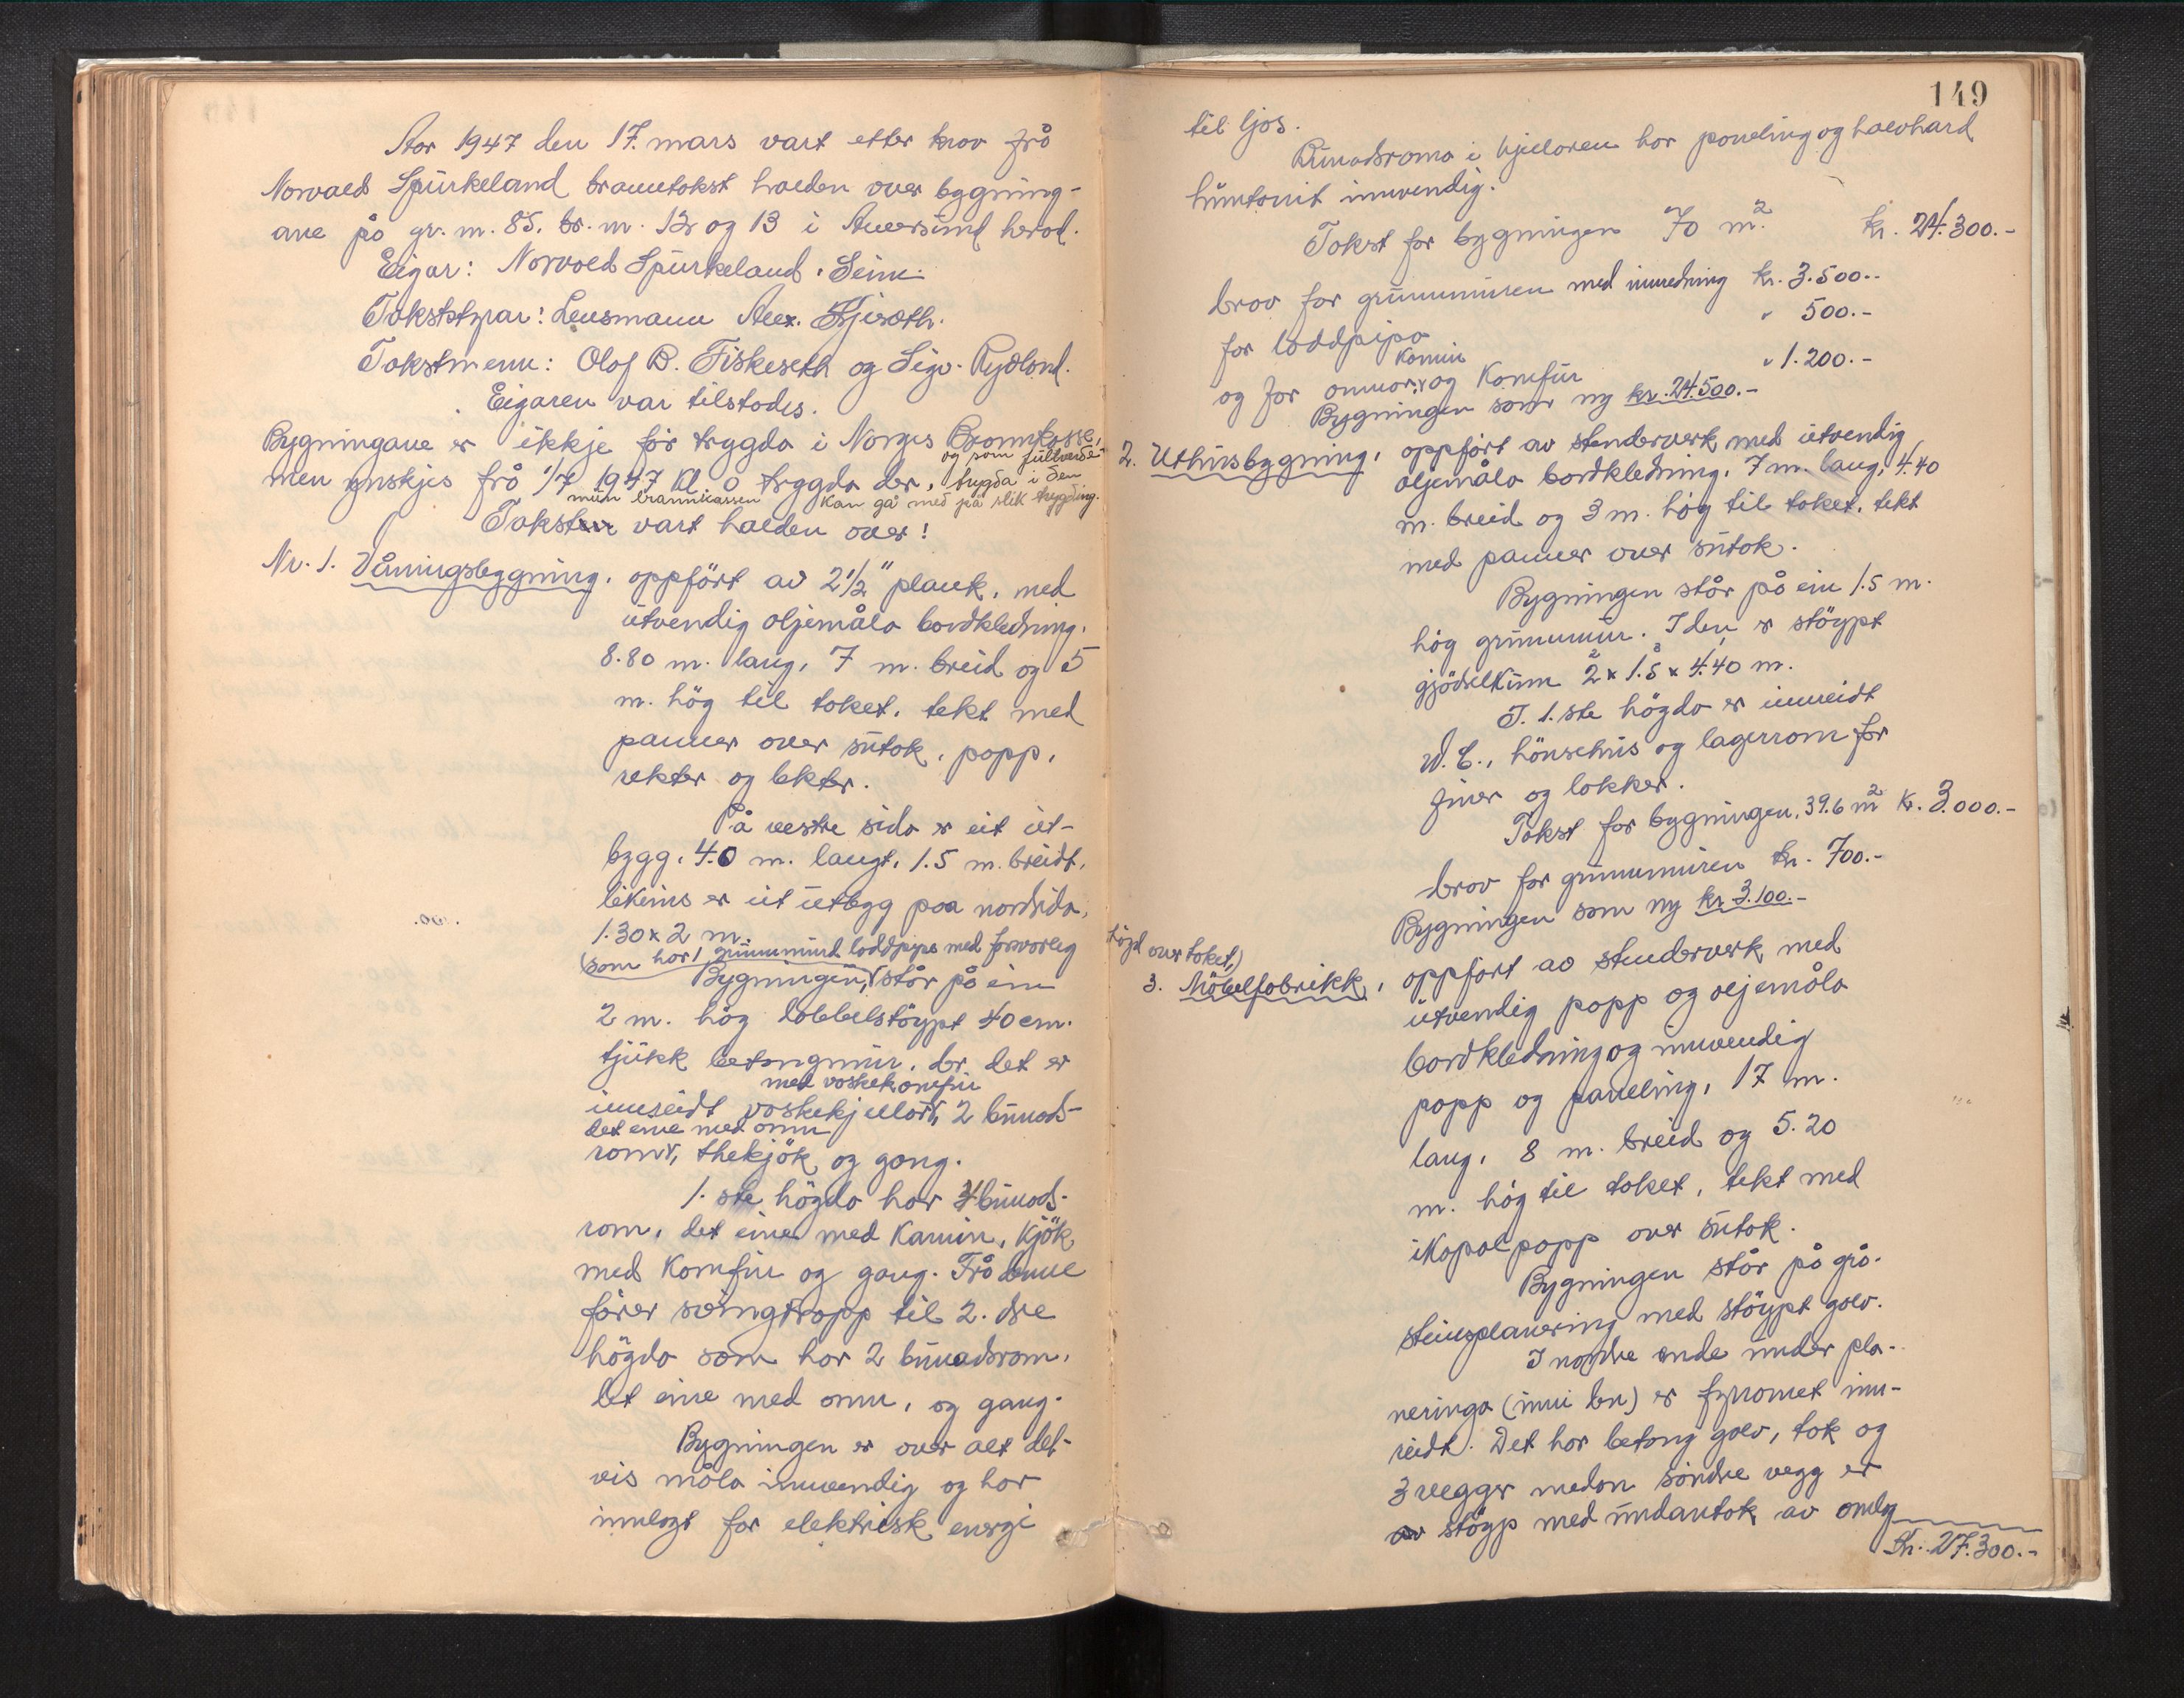 Aar 1947 den 17. mars vart etter krav frå
Norvald Spurkeland branntakst halden over bygning-
ane på gr. nr. 85. br. nr. 12 og 13 i Alversund herad.
Eigar: Norvald Spurkeland. Seim.
Takststyrar: Lensmann Alex. Hjerdth.
Takstmenn: Olaf B. Fiskeseth og Sigv. Rydland.
Eigaren var tilstades.
Bygningane er ikkje før trygda i Norges Brannkasse,
men ynskjes frå 1/7 1947 kl. 0 trygda der, og som fullverdi-
trygda i den
mun brannkassen kan gå med på slik trygding.
Taksten vart halden over:
Nr. 1. Våningsbygning, oppført av 2 1/2" plank, med
utvendig oljemåla bordkledning.
8.80 m. lang, 7 m. breid og 5
m. høg til taket, tekt med
panner over sutak, papp,
rekter og lekter.
På vestre sida er eit ut-
bygg, 4.0 m. langt, 1.5 m. breidt,
likeins er eit utbygg paa nordsida,
1.30 x 2 m.
(som har 1 grunnmurd loddpipe med forsvarleg
høgd over taket,)
Bygningen, står på ein
2 m. høg dobbelstøypt 40 cm.
tjukk betongmur, der det er
med vaskekomfur
innreidt vaskekjellar, 2 bunads-
det eine med omn
rom, thekjøk og gang.
1. ste høgda har 4 bunads-
rom, det eine med Kamin, Kjøk
med Komfur og gang. Frå denne
fører svingtrapp til 2. dre
høgda som har 2 bunadsrom,
det eine med omn, og gang.
Bygningen er over alt del-
vis måla innvendig og har
innlagt for elektrisk energi
149
til ljos.
Bunadsroma i kjellaren har paneling og halvhard
huntonit innvendig.
Takst for bygningen 70 m². kr. 24.300.-
brav for grunnmuren med innredning kr. 3.500.-
for loddpipa " 500.-
og for omnar, Kamin og Komfur " 1.200.-
Bygningen som ny kr. 24.500.-
2. Uthusbygning, oppført av stenderverk med utvendig
oljemåla bordkledning, 7 m. lang, 4.40
m. breid og 3 m. høg til taket, tekt
med panner over sutak.
Bygningen står på ein 1.5 m.
høg grunnmur. I den er støypt
gjødselkum 2 x 1.5 x 4.40 m.
I 1. ste høgda er innreidt
W.C., hønsehus og lagerrom for
finer og lakker.
Takst for bygningen, 39.6 m² kr. 3.000.-
brav for grunnmuren kr. 700.-
Bygningen som ny kr. 3.100.-
3. Møbelfabrikk, oppført av stenderverk med
utvendig papp og oljemåla
bordkledning og innvendig
papp og paneling, 17 m.
lang, 8 m. breid og 5.20
m. høg til taket, tekt med
ikopalpapp over sutak.
Bygningen står på grå-
steinsplanering med støypt golv.
I nordre ende under pla-
neringa (inni den) er fyrromet inn-
reidt. Det har betong golv, tak og
3 vegger medan søndre vegg er
av støyp med undantak av omlag
Kr. 27.300.-